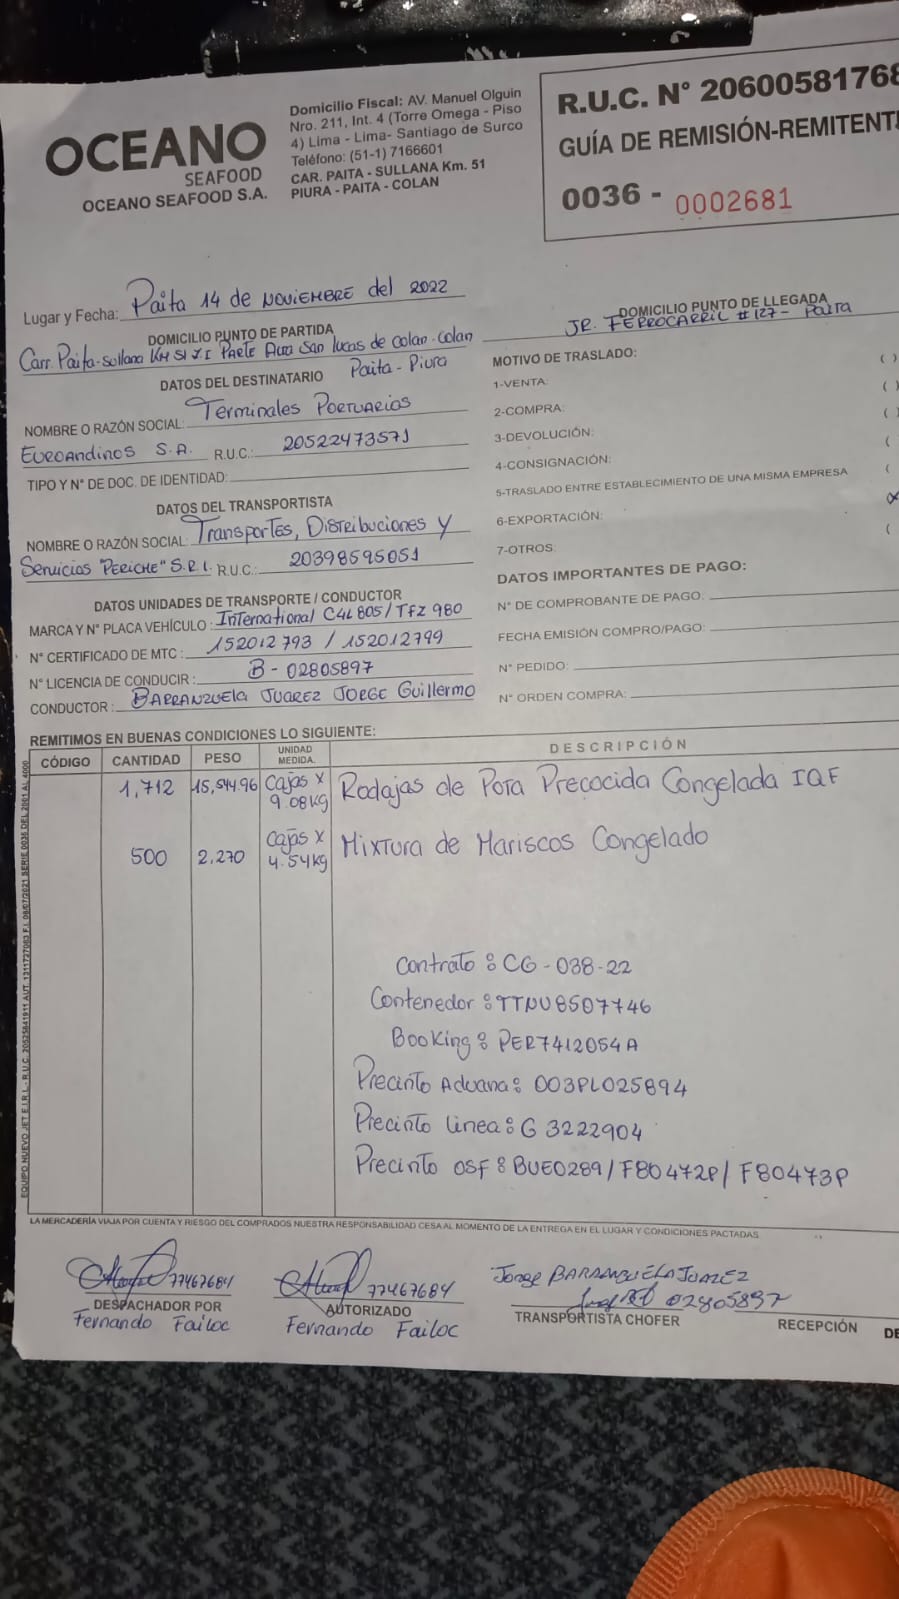 OCEANO
SEAFOOD
OCEANO SEAFOOD S.A.
Domicilio Fiscal: AV. Manuel Olguin
Nro. 211, Int. 4 (Torre Omega - Piso
4) Lima - Lima- Santiago de Surco
Teléfono: (51-1) 7166601
CAR. PAITA - SULLANA Km. 51
PIURA - PAITA - COLAN
R.U.C. N° 20600581768
GUÍA DE REMISIÓN-REMITENTE
0036 - 0002681
Lugar y Fecha: Paita 14 de NOVIEMBRE del 2022
DOMICILIO PUNTO DE PARTIDA
Carr. Paita-sullana KM 51 Z.I Parte Alta San lucas de colan-colan
Paita - Piura
DOMICILIO PUNTO DE LLEGADA
JR. FERROCARRIL #127- Paita
DATOS DEL DESTINATARIO
NOMBRE O RAZÓN SOCIAL: Terminales Portuarios
Euroandinos S.A. R.U.C.: 20522473571
TIPO Y N° DE DOC. DE IDENTIDAD:
DATOS DEL TRANSPORTISTA
NOMBRE O RAZÓN SOCIAL: Transportes, Distribuciones y
Servicios "PERICHE" S.R.L. R.U.C.: 20398595051
DATOS UNIDADES DE TRANSPORTE / CONDUCTOR
MARCA Y N° PLACA VEHÍCULO: International C4L 805/ TFZ 980
N° CERTIFICADO DE MTC: 152012793 / 152012799
N° LICENCIA DE CONDUCIR: B - 02805897
CONDUCTOR: BARRANZUELA JUAREZ JORGE Guillermo
MOTIVO DE TRASLADO:
1-VENTA: ( )
2-COMPRA: ( )
3-DEVOLUCIÓN: ( )
4-CONSIGNACIÓN: (
5-TRASLADO ENTRE ESTABLECIMIENTO DE UNA MISMA EMPRESA (
6-EXPORTACIÓN: X
7-OTROS: (
DATOS IMPORTANTES DE PAGO:
N° DE COMPROBANTE DE PAGO:
FECHA EMISIÓN COMPRO/PAGO:
N° PEDIDO:
N° ORDEN COMPRA:
REMITIMOS EN BUENAS CONDICIONES LO SIGUIENTE:
CÓDIGO CANTIDAD PESO UNIDAD MEDIDA. DESCRIPCIÓN
1,712 15,544.96 Cajas x 9.08kg Rodajas de Pota Precocida Congelada IQF
500 2,270 Cajas x 4.54kg Mixtura de Mariscos Congelado
Contrato : CG - 038-22
Contenedor : TTNU8507746
Booking : PER7412054A
Precinto Aduana: 003PL025894
Precinto linea: G 3222904
Precinto OSF : BUE0289/F80472P/F80473P
EQUIPO NUEVO JET E.I.R.L - R.U.C. 20525841911 AUT. 1311727083 F.I. 08/07/2021 SERIE 0036 DEL 2001 AL 4000
LA MERCADERÍA VIAJA POR CUENTA Y RIESGO DEL COMPRADOS NUESTRA RESPONSABILIDAD CESA AL MOMENTO DE LA ENTREGA EN EL LUGAR Y CONDICIONES PACTADAS
77467684
DESPACHADOR POR
Fernando Failoc
77467684
AUTORIZADO
Fernando Failoc
Jorge BARRANZUELA JUAREZ
02805897
TRANSPORTISTA CHOFER
RECEPCIÓN
DE